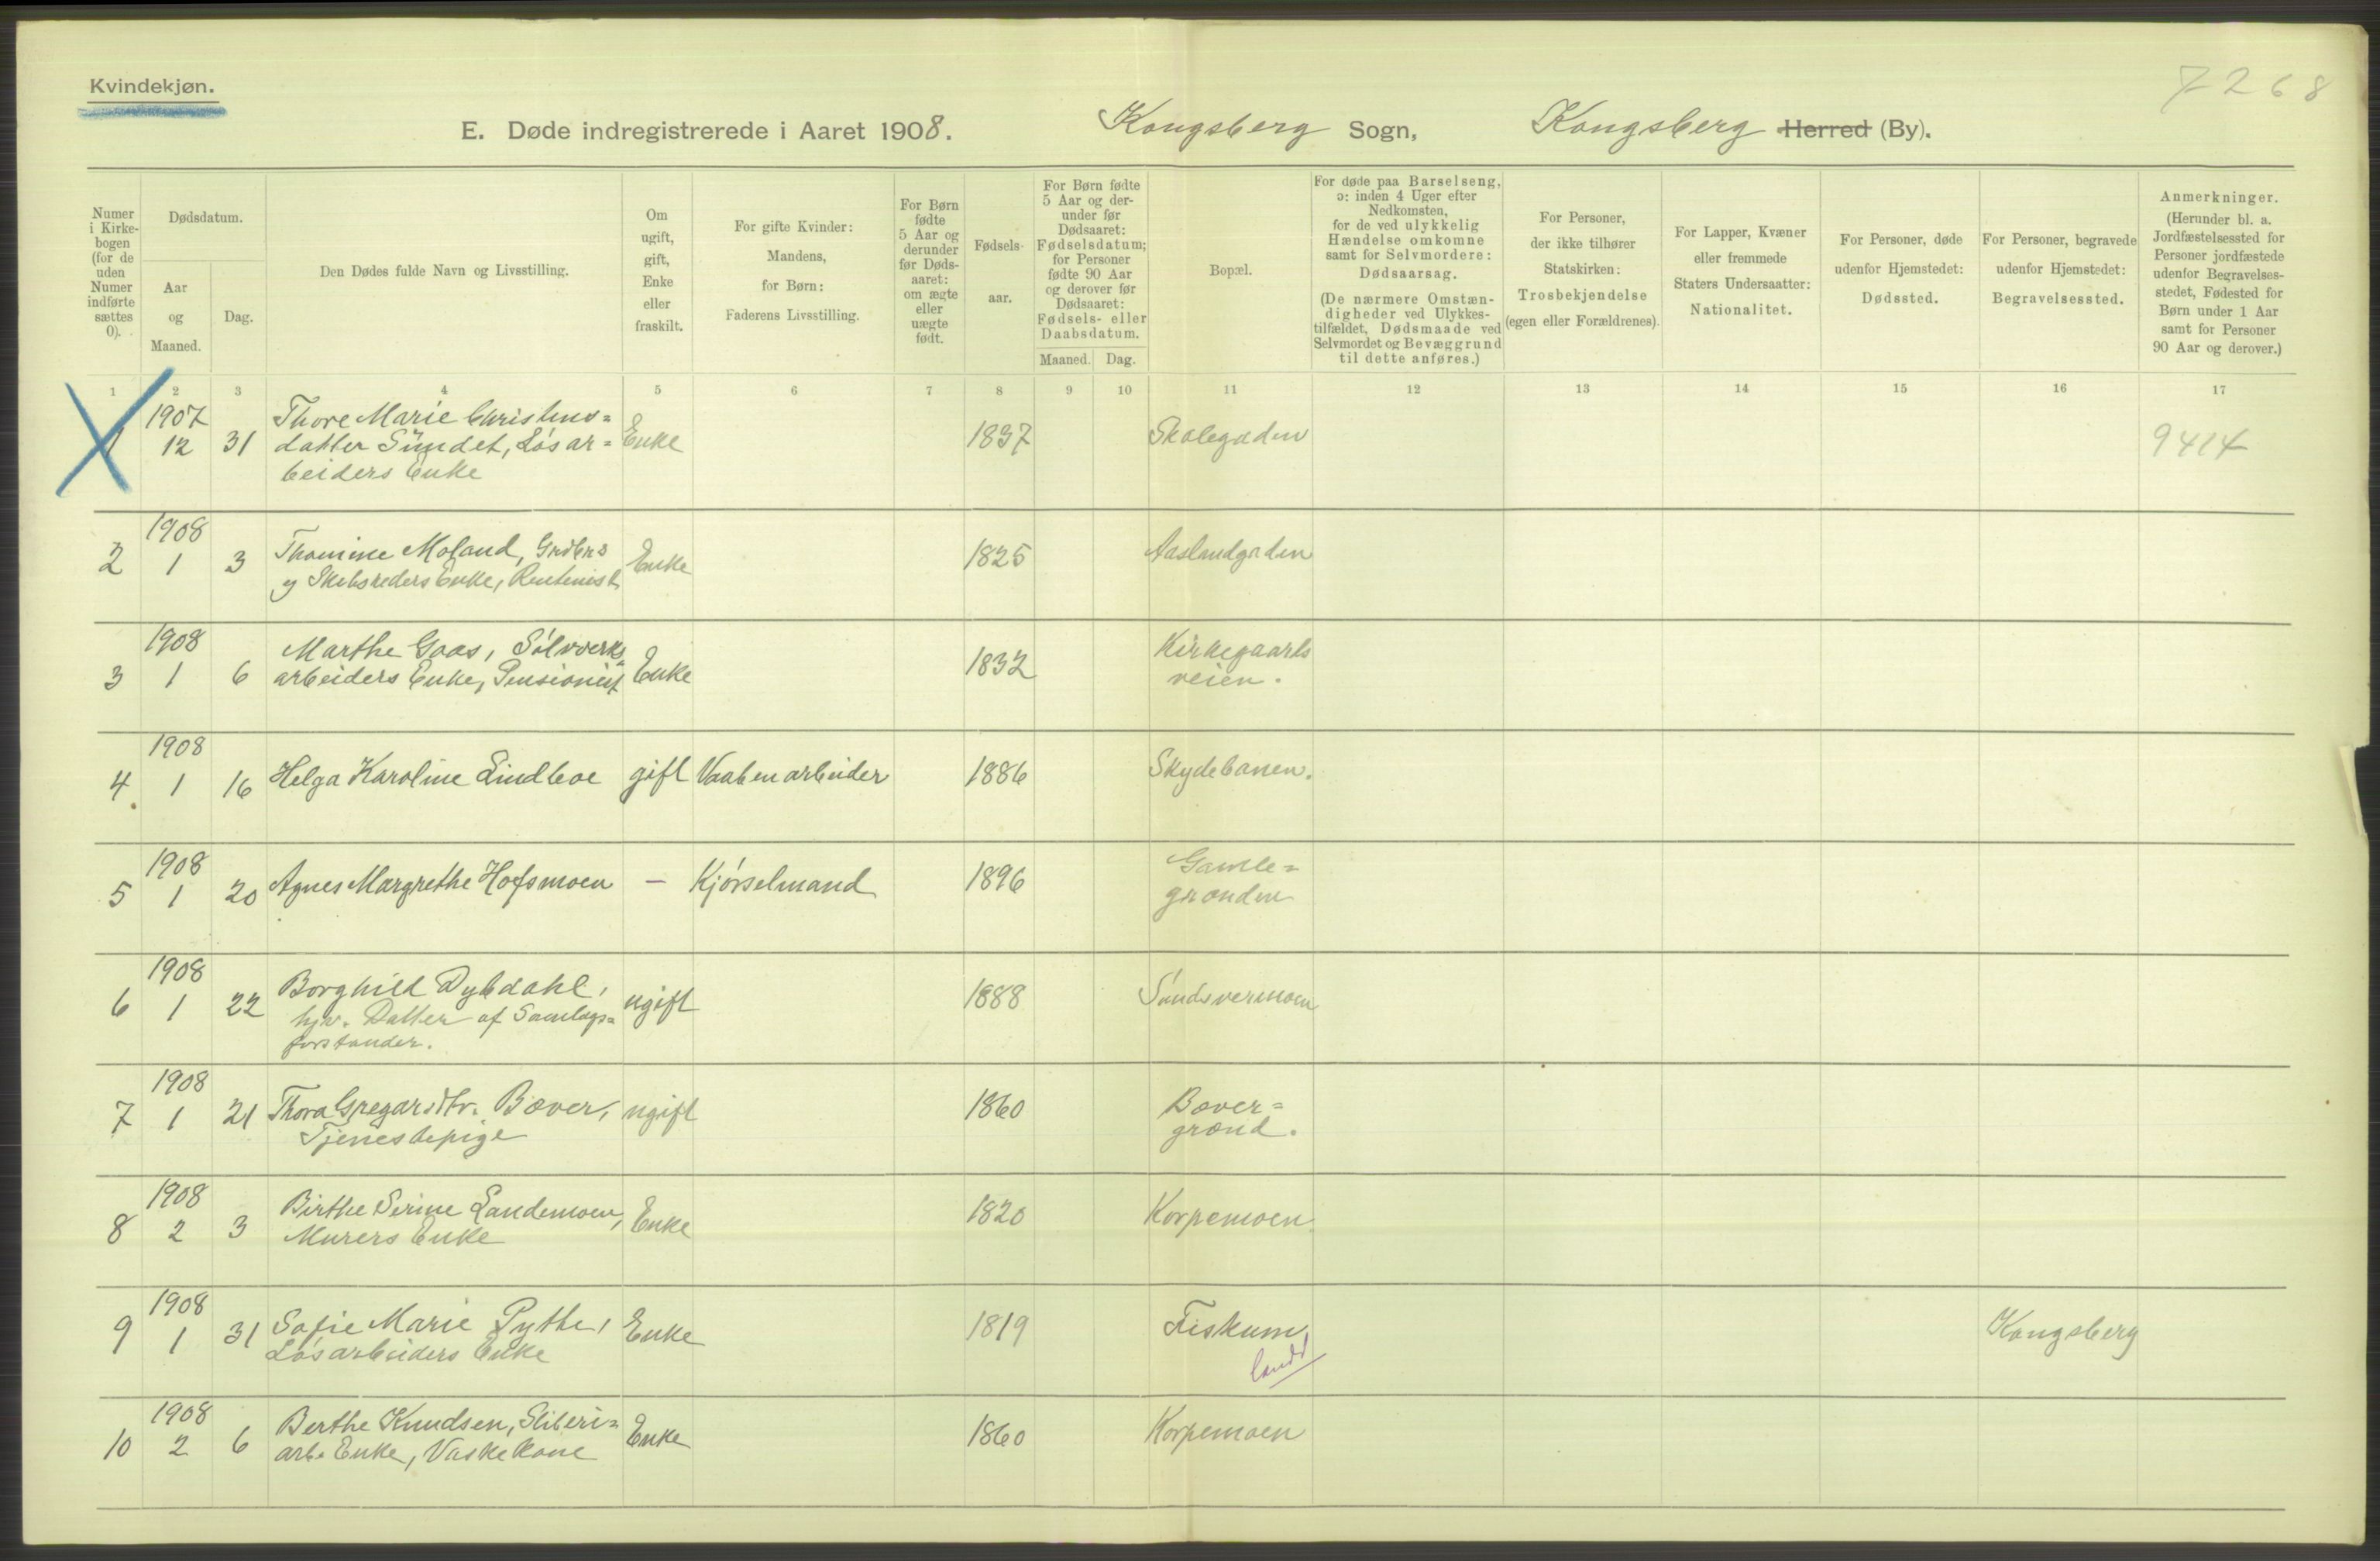 Kvindekjøn.
7268
E. Døde indregistrerede i Aaret 1908. Kongsberg Sogn, Kongsberg Herred (By).
Numer i Kirkebogen (for de uden Numer indførte sættes 0).
Dødsdatum.
Aar og Maaned.
Dag.
Den Dødes fulde Navn og Livsstilling.
Om ugift, gift, Enke eller fraskilt.
For gifte Kvinder: Mandens, for Børn: Faderens Livsstilling.
For Børn fødte 5 Aar og derunder før Dødsaaret: om ægte eller uægte født.
Fødselsaar.
For Børn fødte 5 Aar og derunder før Dødsaaret: Fødselsdatum; for Personer fødte 90 Aar og derover før Dødsaaret: Fødsels- eller Daabsdatum.
Maaned. Dag.
Bopæl.
For døde paa Barselseng, ɔ: inden 4 Uger efter Nedkomsten, for de ved ulykkelig Hændelse omkomne samt for Selvmordere: Dødsaarsag.
(De nærmere Omstændigheder ved Ulykkestilfældet, Dødsmaade ved Selvmordet og Bevæggrund til dette anføres.)
For Personer, der ikke tilhører Statskirken: Trosbekjendelse (egen eller Forældrenes).
For Lapper, Kvæner eller fremmede Staters Undersaatter: Nationalitet.
For Personer, døde udenfor Hjemstedet: Dødssted.
For Personer, begravede udenfor Hjemstedet: Begravelsessted.
Anmerkninger.
(Herunder bl. a. Jordfæstelsessted for Personer jordfæstede udenfor Begravelsesstedet, Fødested for Børn under 1 Aar samt for Personer 90 Aar og derover.)
1 2 3 4 5 6 7 8 9 10 11 12 13 14 15 16 17
1907
1 12 31 Thore Marie Christens=
datter Sundet, Løsar=
beiders Enke Enke 1837 Skolegaden 9414
1908
2 1 3 Thomine Moland, Grdbrs
og Skibsreders Enke, Rentenist Enke 1825 Aaslandgaden
1908
3 1 6 Marthe Gaas, Sølvverks
arbeiders Enke, Pensionist Enke 1832 Kirkegaards
veien.
1908
4 1 16 Helga Karoline Lindboe gift Vaabenarbeider 1886 Skydebanen.
1908
5 1 20 Agnes Margrethe Hofsmoen — Kjørselmand 1896 Gamle=
grænden
1908
6 1 22 Borghild Dybdahl,
hjv. Datter af Samlags=
forstander. ugift 1888 Sandsværmoen
1908
7 1 21 Thora Gregarsdtr. Bæver,
Tjenestepige ugift 1860 Bæver=
grænd.
1908
8 2 3 Birthe Serine Landemoen,
Murers Enke Enke 1820 Korpemoen
1908
9 1 31 Sofie Marie Pythe,
Løsarbeiders Enke Enke 1819 Fiskum, Kongsberg
landd
1908
10 2 6 Berthe Knudsen, Sliberi=
arb. Enke, Vaskekone Enke 1860 Korpemoen